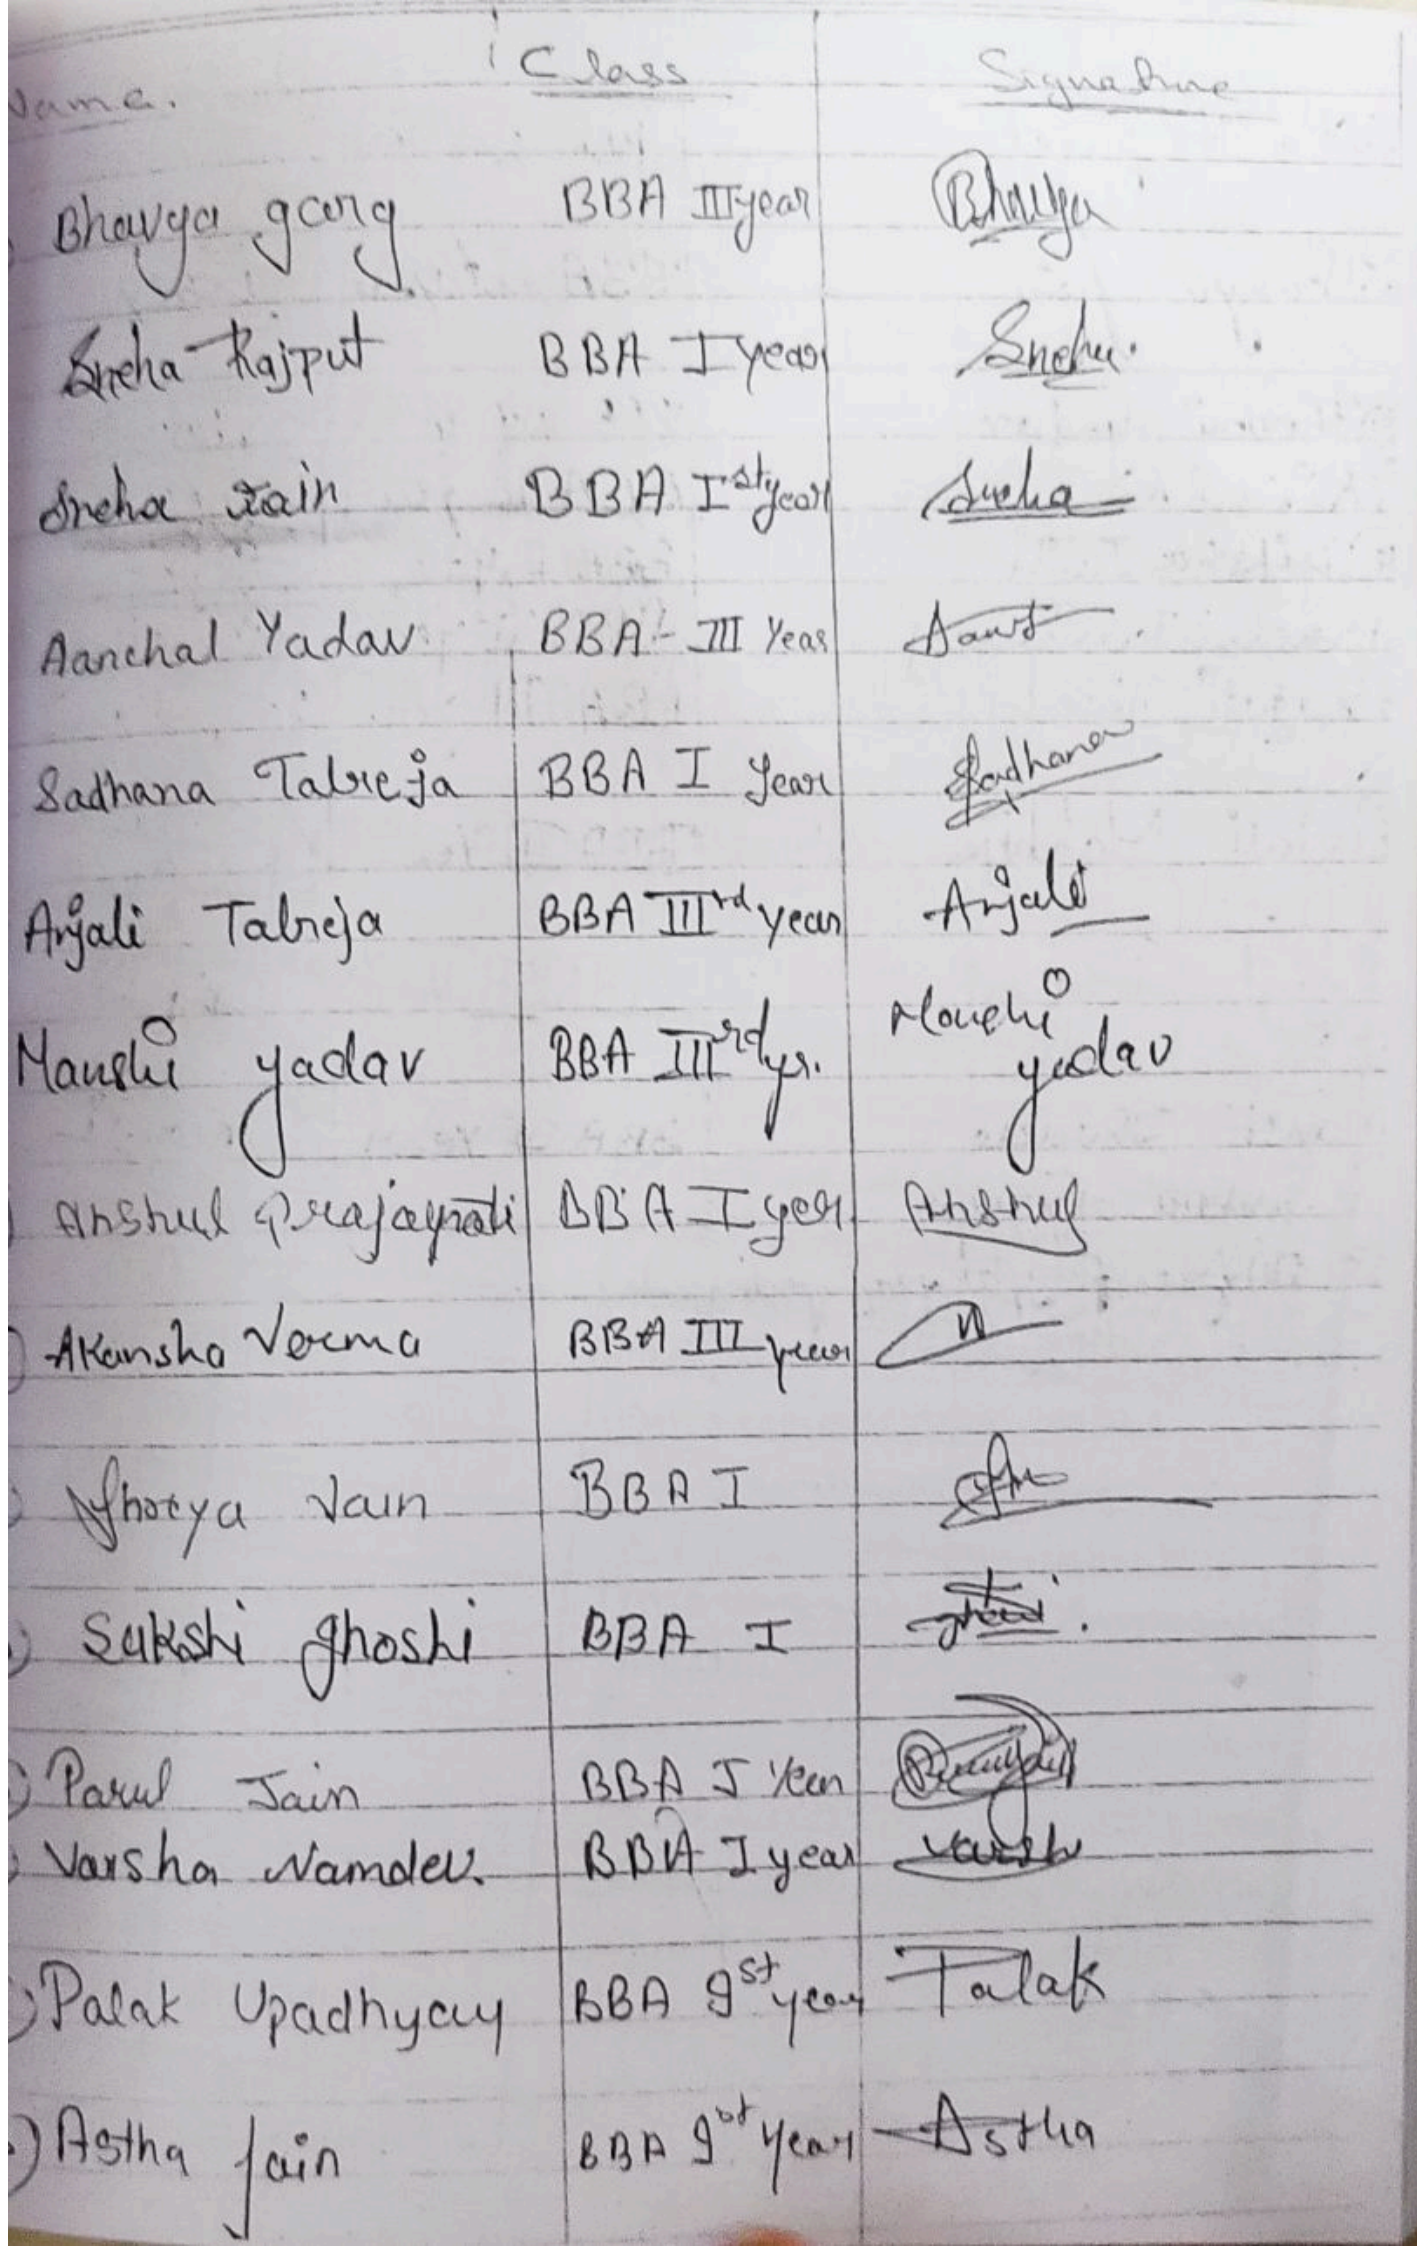 Name. Class Signature
Bhavya garg BBA III year Bhavya
Sneha Rajput BBA I year Sneha.
Sneha Jain BBA I st year Sneha
Aanchal Yadav. BBA - III Year
Sadhana Talreja BBA I Year Sadhana
Anjali Talreja BBA III rd year Anjali
Manshi yadav BBA III rd yr. Manshi yadav
Anshul Prajapati BBA I year Anshul
Akansha Verma BBA III year
Jain BBA I
Sakshi ghoshi BBA I
Parul Jain BBA I Year
Varsha Namdev. BBA I year Varsh
Palak Upadhyay BBA Ist year Palak
Astha Jain BBA Ist Year Astha